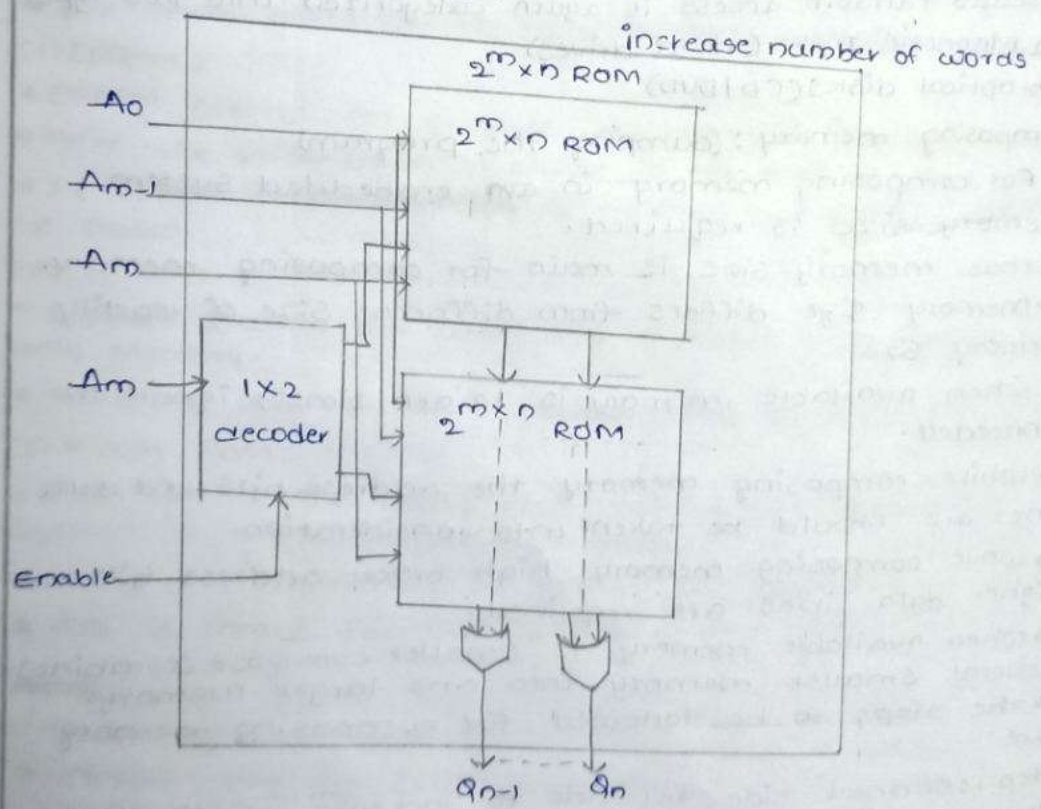 increase number of words
2^m × n ROM
A0
2^m × n ROM
Am-1
Am
Am
1 × 2
decoder
2^m × n ROM
Enable
Qn-1 Qn